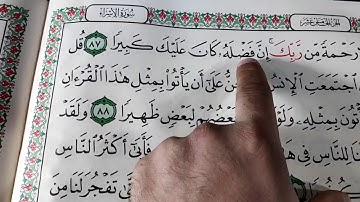 سُورَةُ الإِسْرَاءِ
رَحْمَةً مِّن رَّبِّكَ إِنَّ فَضْلَهُ كَانَ عَلَيْكَ كَبِيرًا ٨٧ قُل
اجْتَمَعَتِ الْإِنسُ عَلَىٰ أَن يَأْتُوا بِمِثْلِ هَٰذَا الْقُرْءَانِ
بِمِثْلِهِ وَلَوْ بَعْضُهُمْ لِبَعْضٍ ظَهِيرًا ٨٨ وَلَقَدْ
لِلنَّاسِ فِي هَٰذَا فَأَبَىٰ أَكْثَرُ النَّاسِ
تَفْجُرَ لَنَا مِنَ